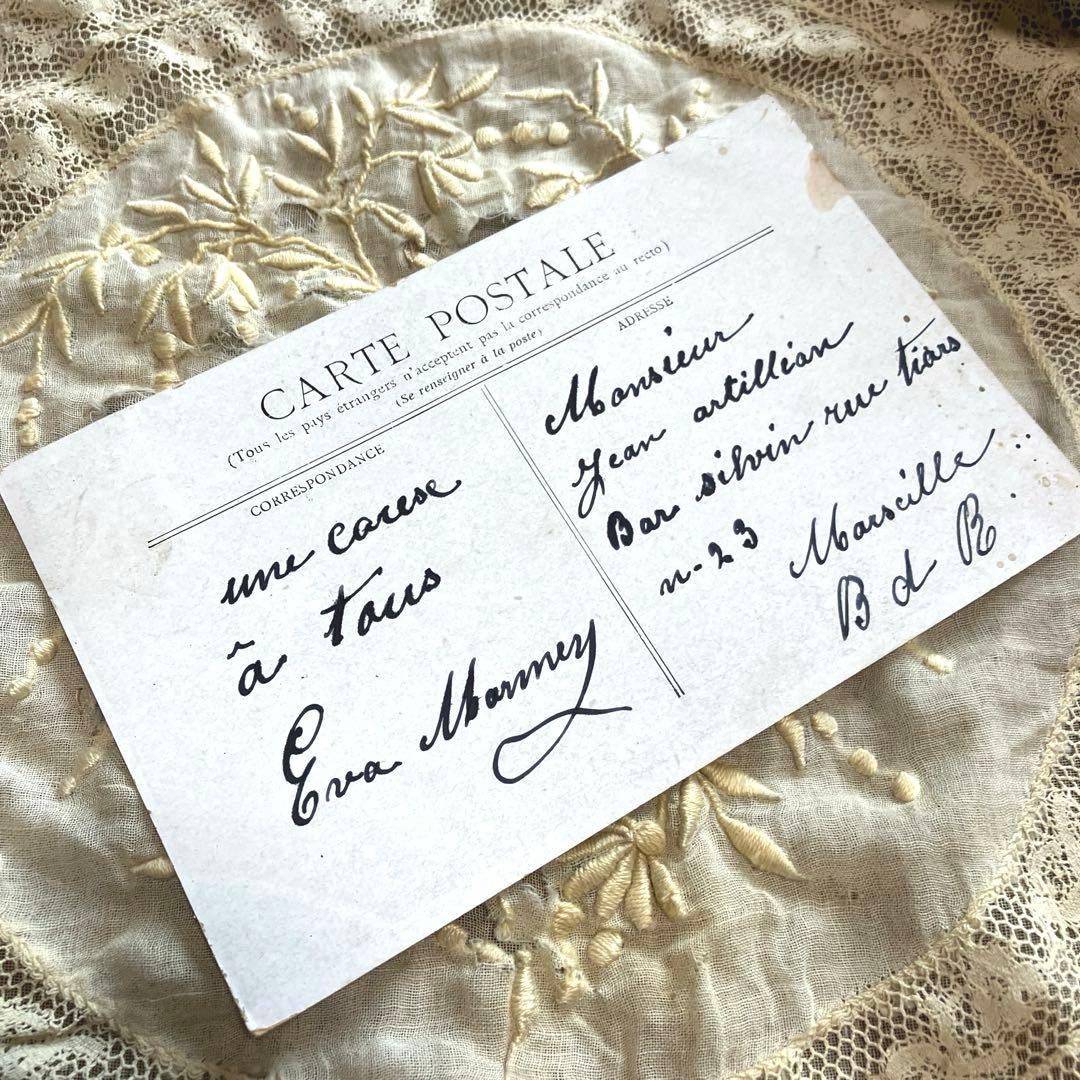 CARTE POSTALE
(Tous les pays étrangers n'acceptent pas la correspondance au recto)
(Se renseigner à la poste)
CORRESPONDANCE
une carese
à tous
Eva Marmey
ADRESSE
Monsieur
Jean artillian
Bar silvin rue tiars
n-23 Marseille ..
B d R.